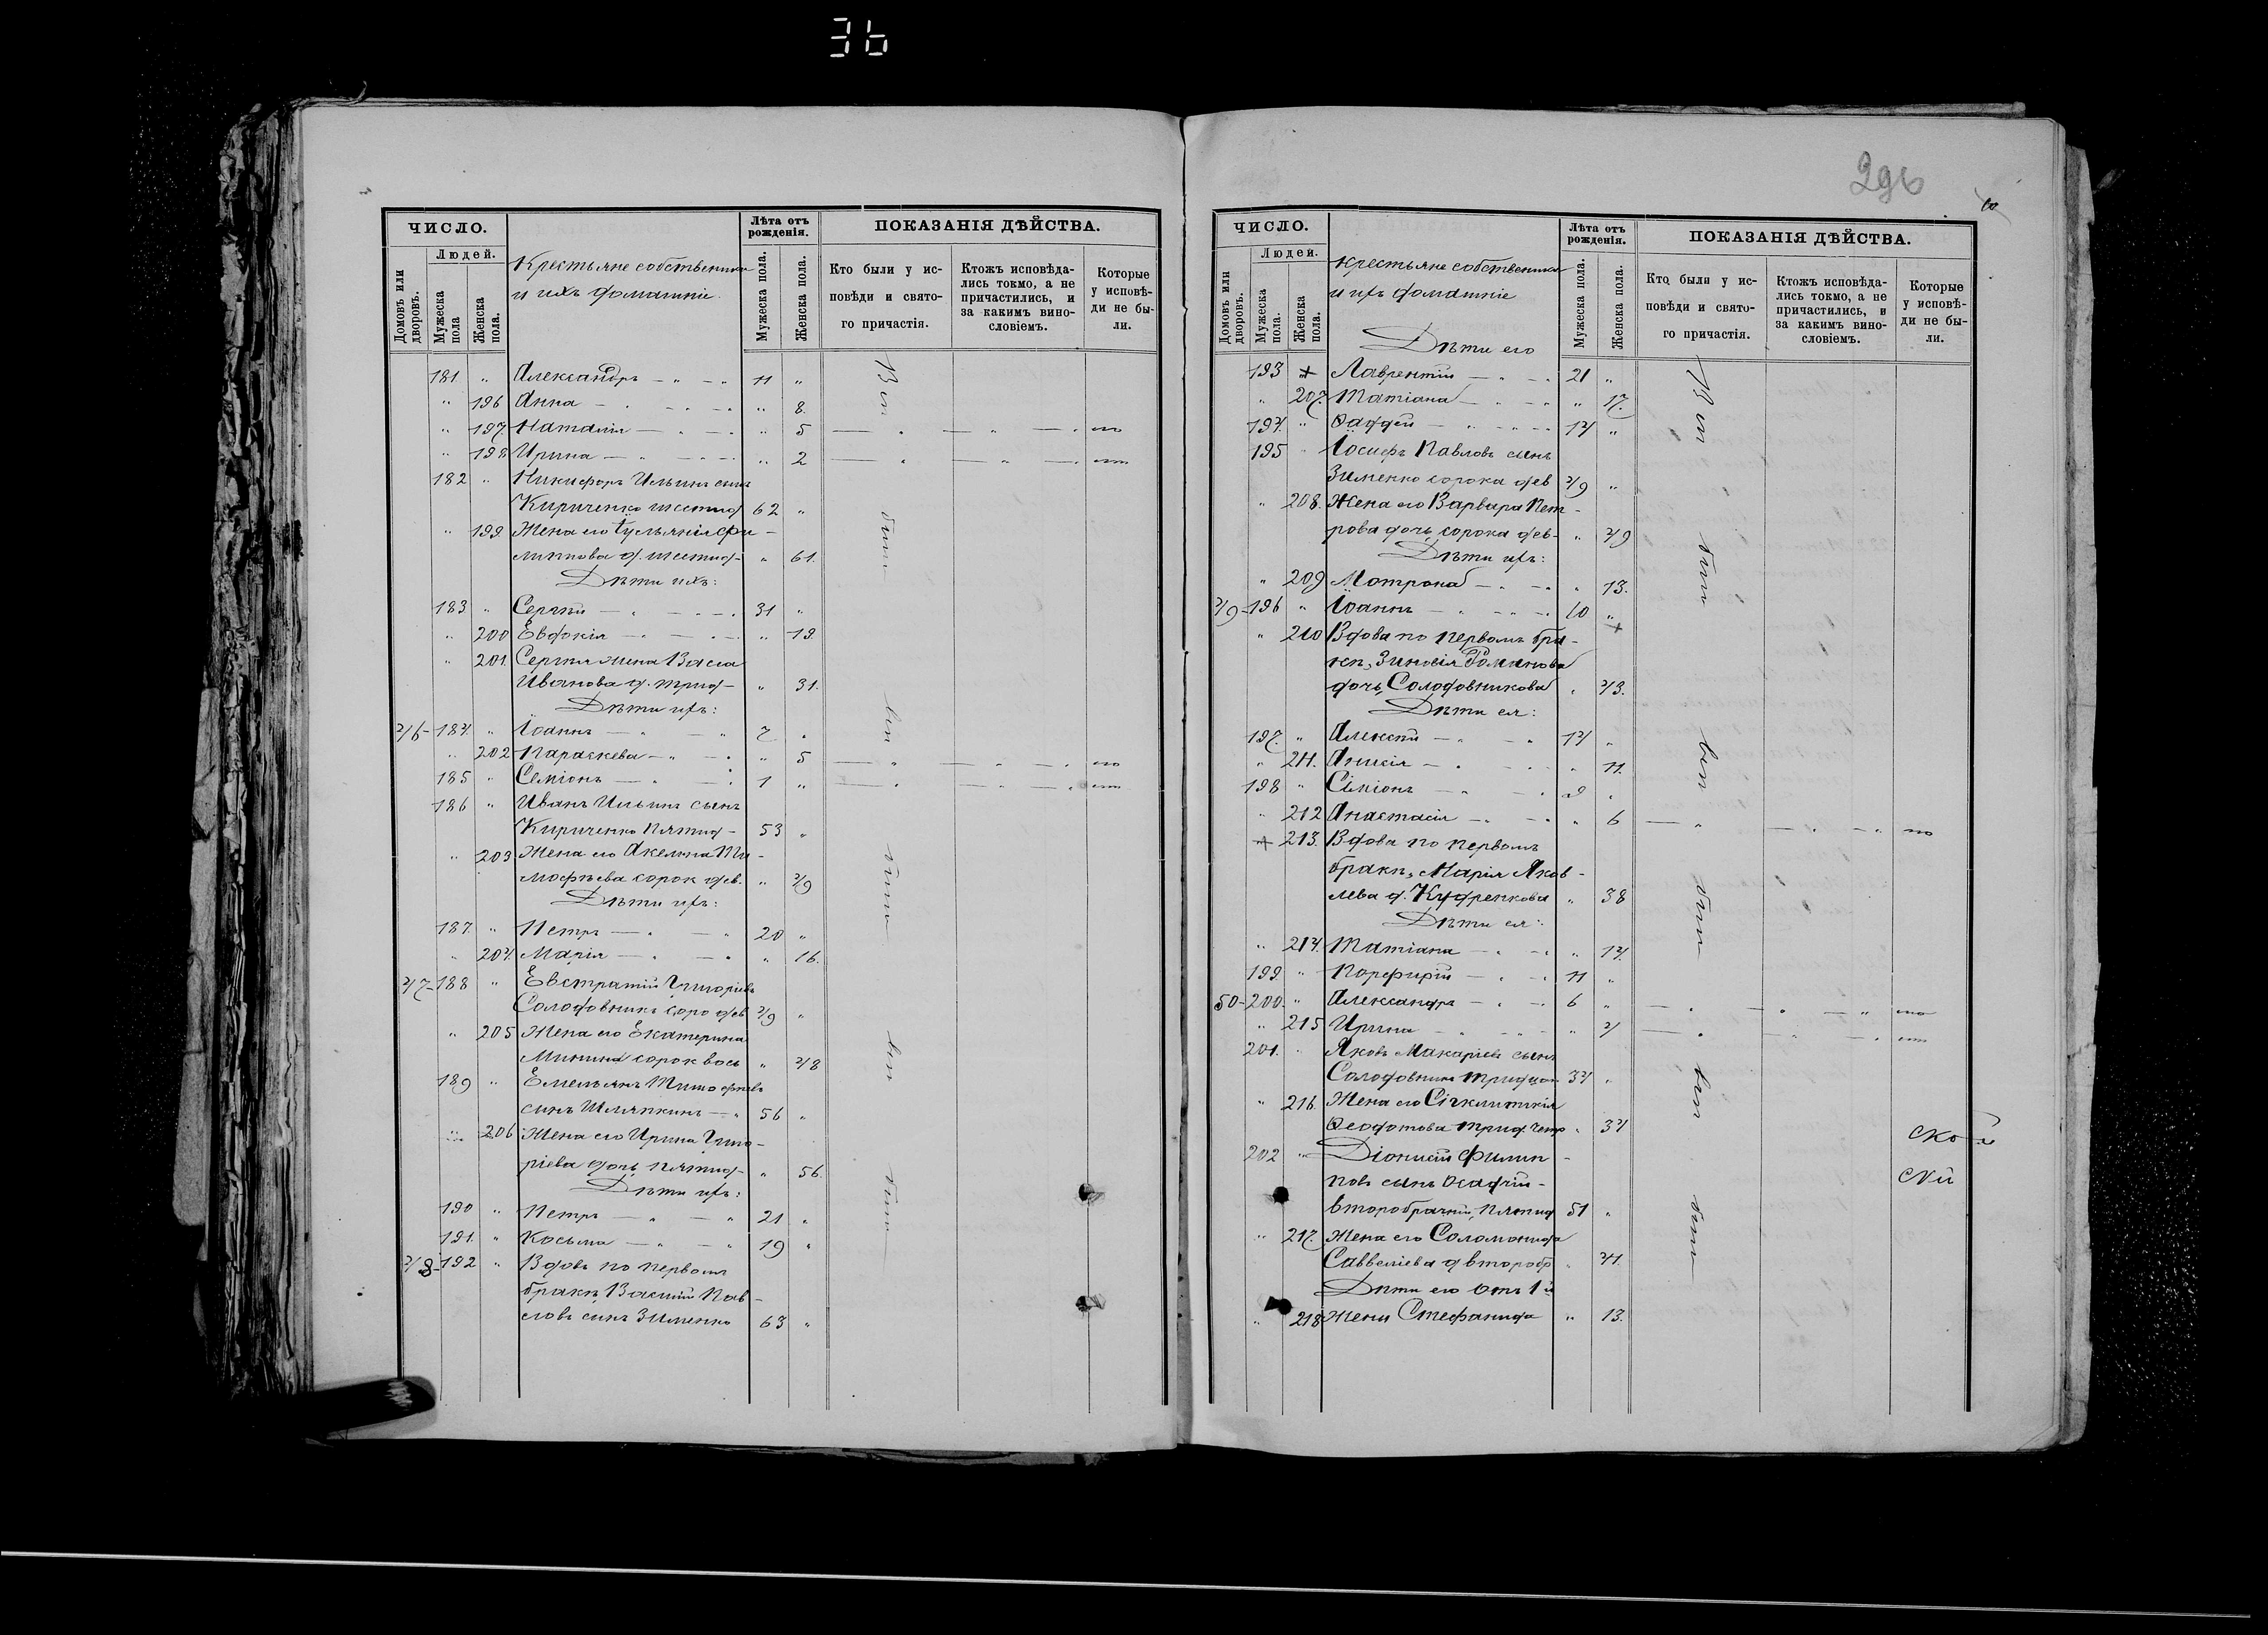 36
296
ЧИСЛО.
Людей.
Домовъ или дворовъ.
Мужеска пола
Женска пола.
Крестьяне собственники
и ихъ домашніе.
Лѣта отъ рожденія.
Мужеска пола.
Женска пола.
ПОКАЗАНІЯ ДѢЙСТВА.
Кто были у исповѣди и святого причастія.
Ктожъ исповѣдались токмо, а не причастились, и за какимъ винословіемъ.
Которые у исповѣди не были.
181 " Александръ — " — " 11 "
" 196 Анна — " — " " 8.
" 197 Наталія — " — " " 5
" 198 Ирина — " — " " 2
182 " Никифоръ Ильинъ сынъ
Кириченко шестид 62 "
" 199. Жена его Гульянія Фи-
липпова д. шестид- " 61.
Дѣти ихъ:
183 " Сергѣй — " — " 31 "
" 200 Евдокія — " — " " 19
" 201. Сергѣя жена Васса
Иванова д. трид- " 31.
Дѣти ихъ:
46- 184. " Іоаннъ — " — " 7 "
" 202 Параскева — " — " " 5
185 " Семіонъ — " — " 1 "
186 " Иванъ Ильинъ сынъ
Кириченко пятид- 53 "
" 203 Жена его Акелина Ти-
мофѣева сорок дев. " 49
Дѣти ихъ:
187. " Петръ — " — " 20 "
" 204. Марія — " — " " 16.
47- 188 " Евстратій Григоріевъ
Солодовникъ соро дев 49 "
" 205 Жена его Екатерина
Минина сорок вось " 48
189 " Емельянъ Тимофѣевъ
сынъ Шляпкинъ — " 56 "
" 206 Жена его Ирина Григо-
ріева дочь пятид- " 56.
Дѣти ихъ:
190 " Петръ — " — " 21 "
191. " Косьма — " — " 19 "
48- 192 " Вдовъ по первомъ
бракѣ Василій Пав-
ловъ сынъ Зименко 63 "
Всѣ были всѣ были всѣ были
ЧИСЛО.
Людей.
Домовъ или дворовъ.
Мужеска пола.
Женска пола.
Крестьяне собственники
и ихъ домашніе
Лѣта отъ рожденія.
Мужеска пола.
Женска пола.
ПОКАЗАНІЯ ДѢЙСТВА.
Кто были у исповѣди и святого причастія.
Ктожъ исповѣдались токмо, а не причастились, и за какимъ винословіемъ.
Которые у исповѣди не были.
Дѣти его
193 Лаврентій — " — " 21 "
" 207. Татіана — " — " " 17.
194. " Ѳаддей — " — " 14 "
195 " Іосифъ Павловъ сынъ
Зименко сорока дев 49 "
" 208. Жена его Варвара Пет-
рова дочь сорока дев- " 49
Дѣти ихъ:
" 209 Матрона — " — " " 13.
49- 196 " Іоаннъ — " — " 10 "
" 210 Вдова по первомъ бра-
кѣ, Зиновія Романова
дочь Солодовникова " 43.
Дѣти ея:
197. " Алексѣй — " — " 14 "
" 211. Анисія — " — " " 11.
198 " Симіонъ — " — " 9 "
" 212 Анастасія — " — " " 6
213. Вдова по первомъ
бракѣ, Марія Яков-
лева д. Кудренкова " 38
Дѣти ея:
" 214. Татіана — " — " " 14.
199. " Порфирій — " — " 11 "
50- 200. " Александръ — " — " 6 "
" 215 Ирина — " — " " 4
201. " Яковъ Макаріевъ сынъ
Солодовникъ тридцат 34 "
" 216. Жена его Сигклитикія
Ѳеодотова трид. четр " 34
202 " Діонисій Филип-
повъ сынъ Осадчій-
второбрачный, пятид 51 "
" 217. Жена его Соломонида
Савеліева д второбр " 41.
Дѣти его отъ 1 й
" 218 жены Стефанида " 13.
Всѣ были всѣ были всѣ были
ской
скій